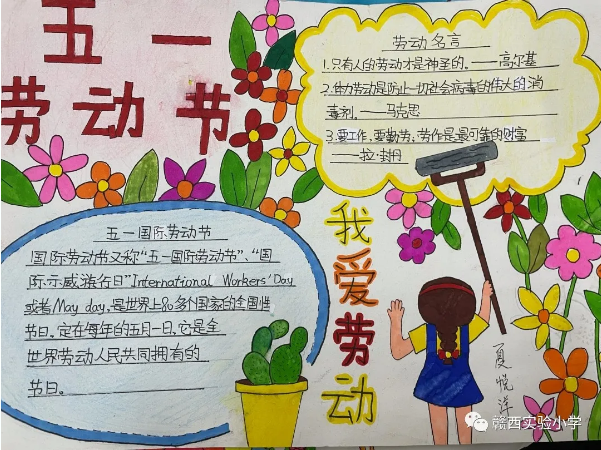 五一
劳动节
劳动名言
1.只有人的劳动才是神圣的。——高尔基
2.体力劳动是防止一切社会病毒的伟大的消
毒剂。——马克思
3.要工作,要勤劳,劳作是最可能的财富
——拉·封丹
五一国际劳动节
国际劳动节又称“五一国际劳动节”、“国
际示威游行日”International Workers'Day
或者May day,是世界上80多个国家的全国性
节日。定在每年的五月一日。它是全
世界劳动人民共同拥有的
节日。
我爱劳动
夏悦洋
赣西实验小学